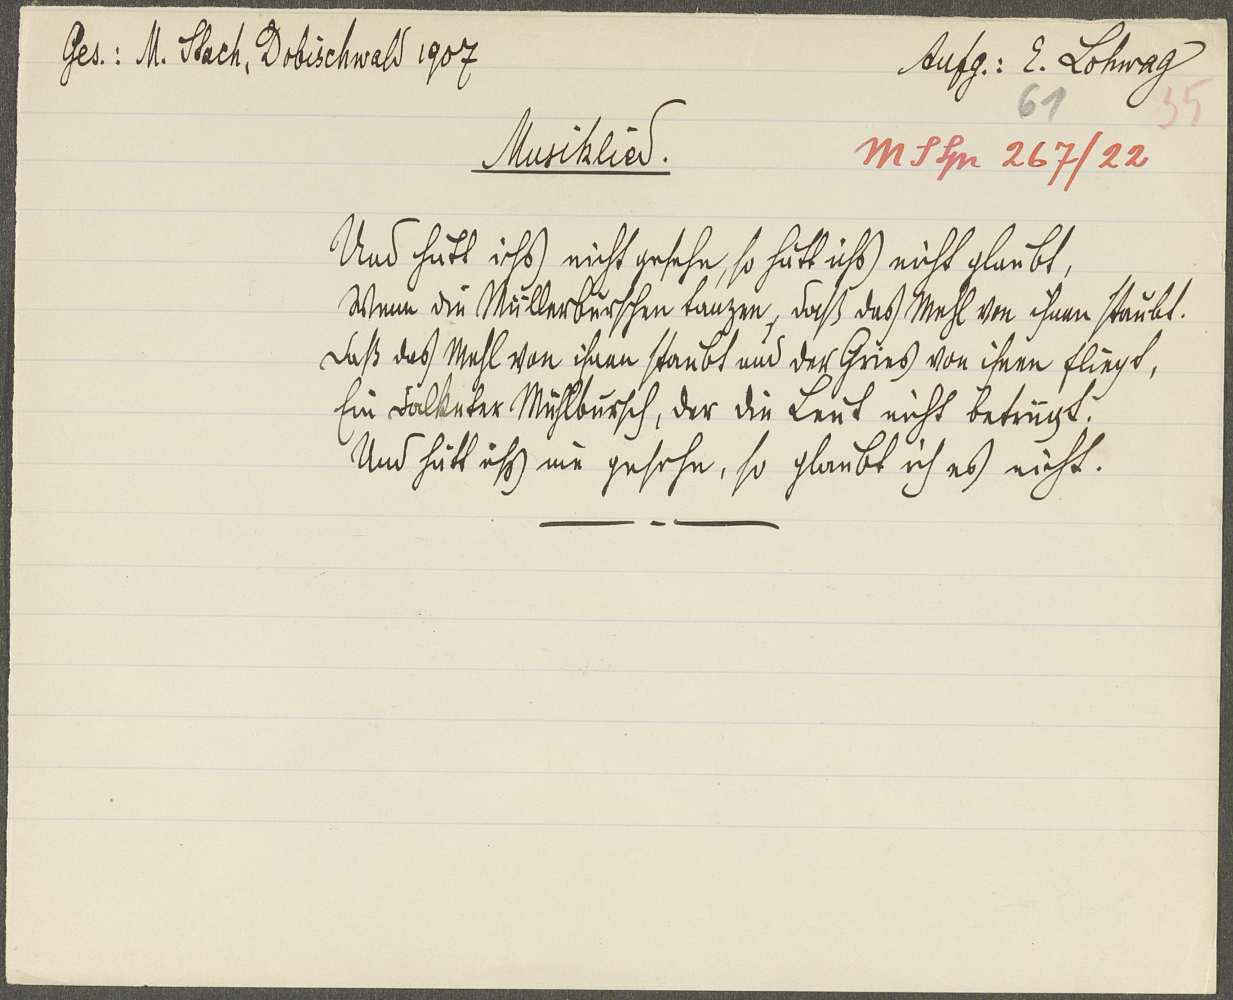 Ges.: M. Stach, Dobischwald 1907
Aufg.: E. Lohwag
61 35
Musiklied.
M S Spr 267/22
Und hätt ichs nicht gesehn, so hätt ichs nicht glaubt,
Wenn die Müllerburschen tanzen, daß das Mehl von ihnen staubt.
Daß das Mehl von ihnen staubt und der Gries von ihnen fliegt,
Ein Mühlbursch, der die Leut nicht betrügt.
Und hätt ichs nie gesehn, so glaubt ich es nicht.